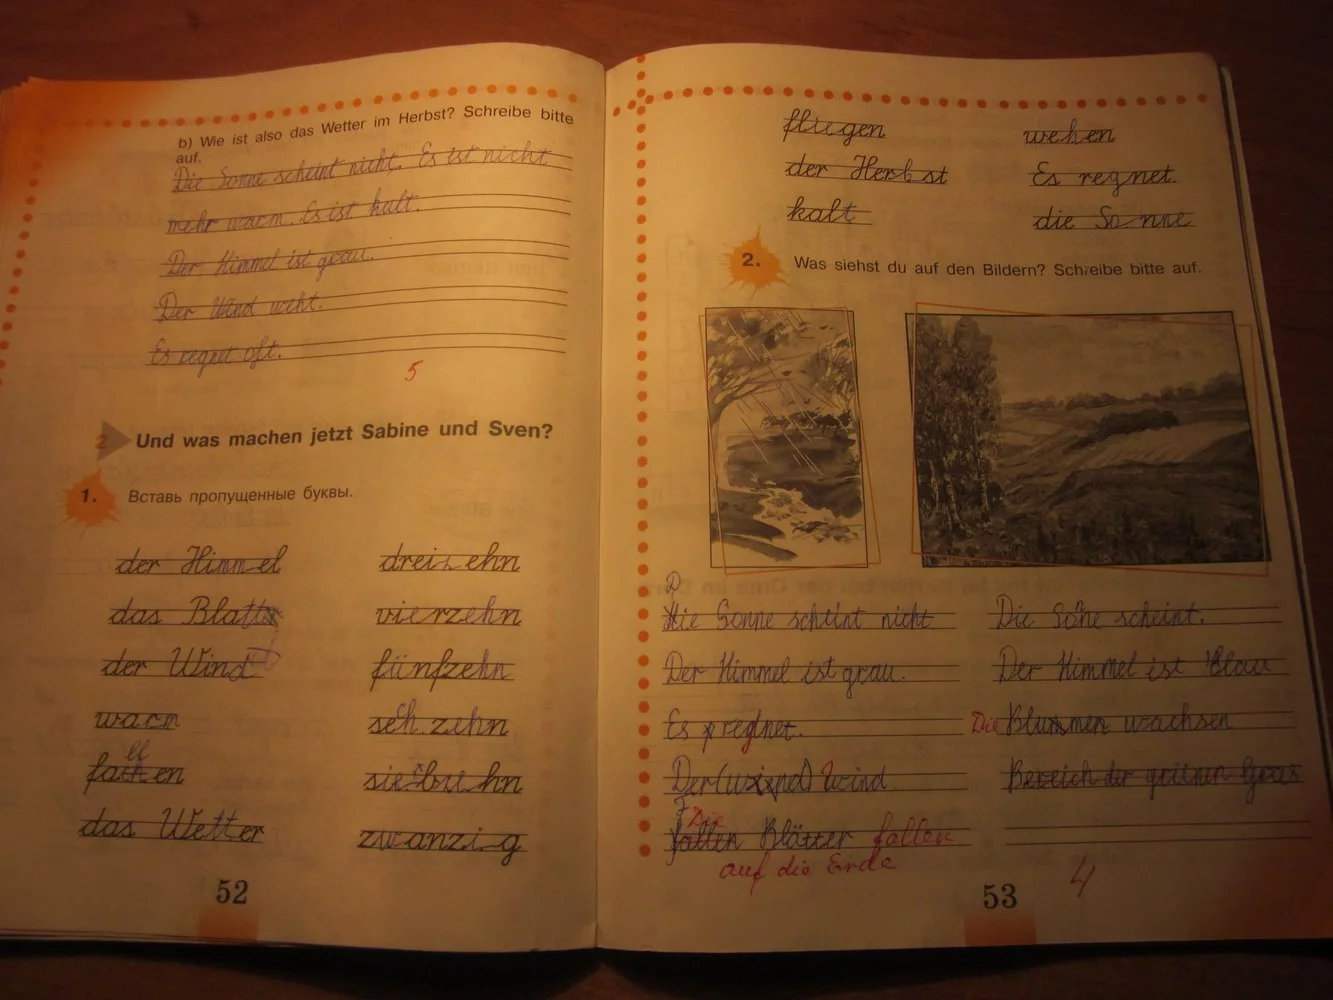 b) Wie ist also das Wetter im Herbst? Schreibe bitte
auf.
Die Sonne scheint nicht. Es ist nicht
mehr warm. Es ist kult.
Der Himmel ist grau.
Der Wind weht.
Es regnet oft.
5
2 Und was machen jetzt Sabine und Sven?
1. Вставь пропущенные буквы.
der Himmel
das Blatt
der Wind
warm
fallen
das Wetter
dreizehn
vierzehn
fünfzehn
sechzehn
zwanzig
52
fliegen
der Herbst
kalt
wehen
Es regnet.
die Sonne
2. Was siehst du auf den Bildern? Schreibe bitte auf.
Die Sonne scheint nicht
Der Himmel ist grau.
Es regnet.
Der Wind
Die Blätter fallen
auf die Erde
Die Soñe scheint.
Der Himmel ist Blau
Die Blumen wachsen
der grünen Gras
4
53